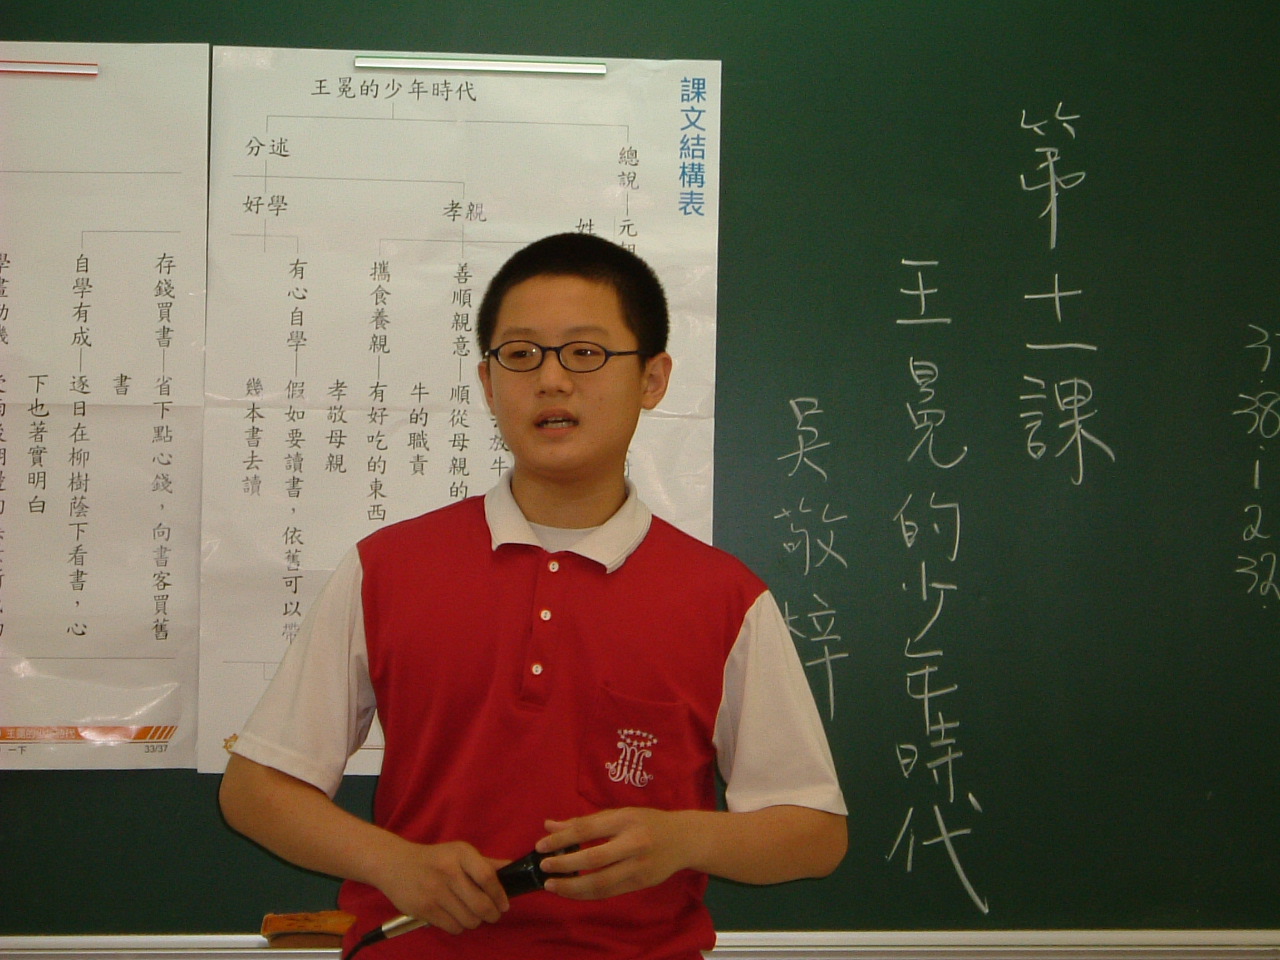 課文結構表
王冕的少年時代
總說
元朝
姓
分述
孝親
好學
善順親意
順從母親的
牛的職責
攜食養親
有好吃的東西
孝敬母親
有心自學
假如要讀書，依舊可以帶
幾本書去讀
存錢買書
省下點心錢，向書客買舊
書
自學有成
逐日在柳樹蔭下看書，心
下也著實明白
33/37
第十一課
王冕的少年時代
吳敬梓
38.
1
2
32.